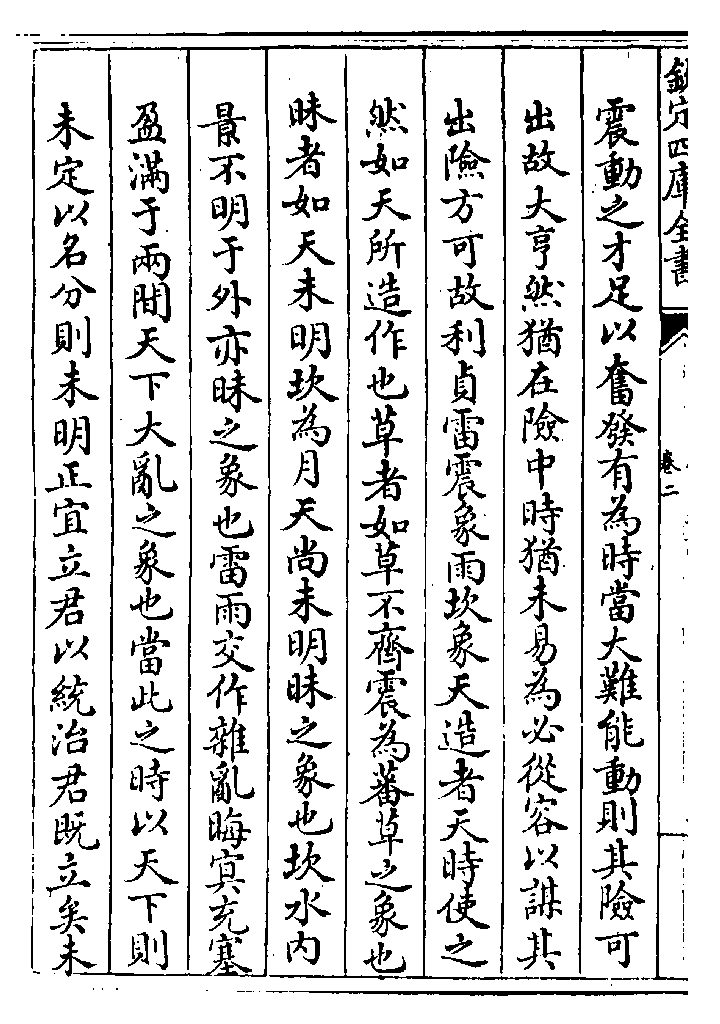 欽定四庫全書
卷二
震動之才足以奮發有為時當大難能動則其險可
出故大亨然猶在險中時猶未易為必從容以謀其
出險方可故利貞雷震象雨坎象天造者天時使之
然如天所造作也草者如草不齊震為蕃草之象也
昧者如天未明坎為月天尚未明昧之象也坎水內
景不明于外亦昧之象也雷雨交作雜亂晦冥充塞
盈滿于兩間天下大亂之象也當此之時以天下則
未定以名分則未明正宜立君以統治君既立矣未